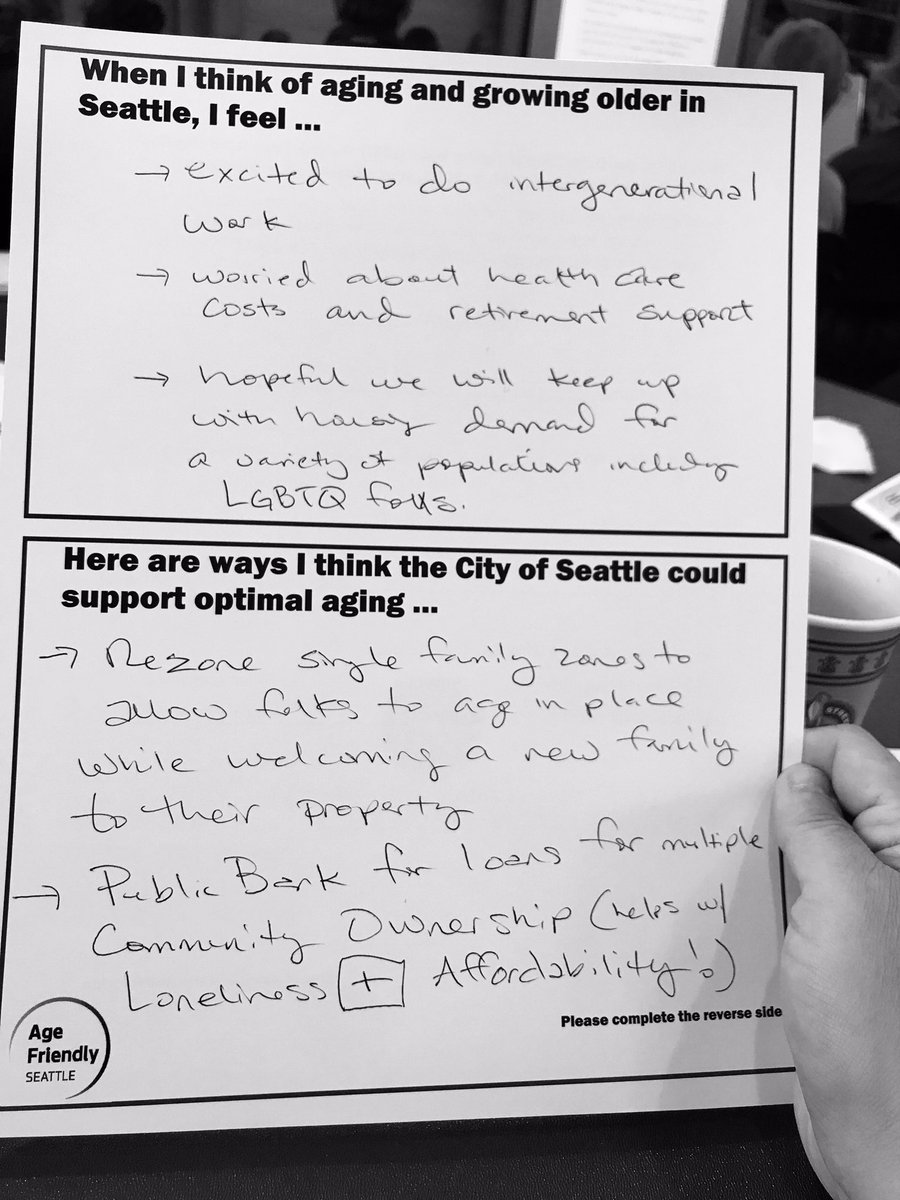 When I think of aging and growing older in
Seattle, I feel ...
→ excited to do intergenerational
work
→ worried about health care
costs and retirement support
→ hopeful we will keep up
with housing demand for
a variety of populations including
LGBTQ folks.
Here are ways I think the City of Seattle could
support optimal aging ...
→ Rezone single family zones to
allow folks to age in place
while welcoming a new family
to their property
→ Public Bank for loans for multiple
Community Ownership (helps w/
Loneliness + Affordability!)
Please complete the reverse side
Age
Friendly
SEATTLE